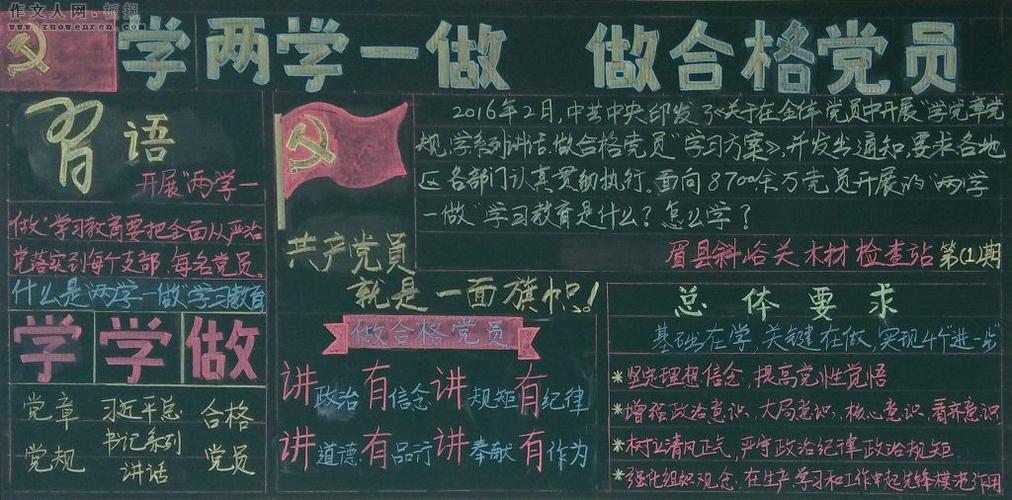 作文人网·板报
www.zuowenren.com
学两学一做 做合格党员
習语
开展“两学一
做”学习教育要把全面从严治
党落实到每个支部、每名党员。
什么是“两学一做”学习教育
学 学 做
党章 习近平总 合格
党规 书记系列 党员
讲话
共产党员
就是一面旗帜!
做合格党员
讲政治 有信念 讲规矩 有纪律
讲道德 有品行 讲奉献 有作为
2016年2月,中共中央印发了《关于在全体党员中开展“学党章党
规、学系列讲话,做合格党员”学习方案》,并发出通知,要求各地
区各部门认真贯彻执行。面向8700余万党员开展的“两学
一做”学习教育是什么?怎么学?
眉县斜峪关木材检查站 第(1)期
总体要求
基础在学,关键在做,实现4个“进一步”
*坚定理想信念,提高党性觉悟
*增强政治意识、大局意识、核心意识、看齐意识
*树立清风正气,严守政治纪律政治规矩
*强化组织观念、在生产学习和工作中起先锋模范作用